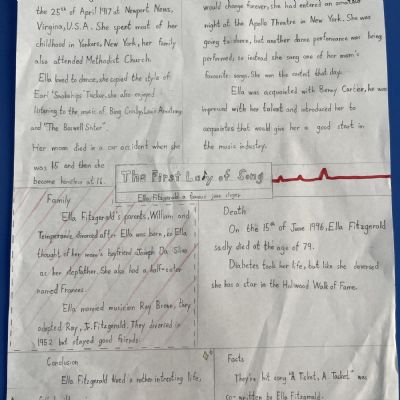 the 25th of April 1917 at Newport News,
Virginia, U.S.A. She spent most of her
childhood in Yonkers, New York, her family
also attended Methodist Church.
Ella loved to dance, she copied the style of
Earl "Snakehips" Tucker, she also enjoyed
listening to the music of Bing Crosby, Louis Armstrong
and "The Boswell Sister".
Her mom died in a car accident when she
was 15 and then she
become homeless at 16.
would change forever, she had entered an amateur
night at the Apollo Theatre in New York. She was
going to dance, but another dance performance was being
performed, so instead she song one of her mom's
favourite song. She won the contest that day.
Ella was acquainted with Benny Carter, he was
impressed with her talent and introduced her to
acquaintes that would give her a good start in
the music industry.
The First Lady of Song
Ella Fitzgerald a famous jazz singer
Family
Ella Fitzgerald's parents, William and
Temperance divorced after Ella was born, so Ella
thought of her mom's boyfriend Joseph Da Silva
as her stepfather. She also had a half-sister
named Frances.
Ella married musician Ray Brown, they
adopted Ray, Jr. Fitzgerald. They divorced in
1952 but stayed good friends.
Death
On the 15th of June 1996, Ella Fitzgerald
sadly died at the age of 79.
Diabetes took her life, but like she deserved
she has a star in the Holiwood Walk of Fame.
Conclusion
Ella Fitzgerald lived a rather intresting life,
Facts
They're hit song "A Tisket, A Tasket" was
co-written by Ella Fitzgerald.